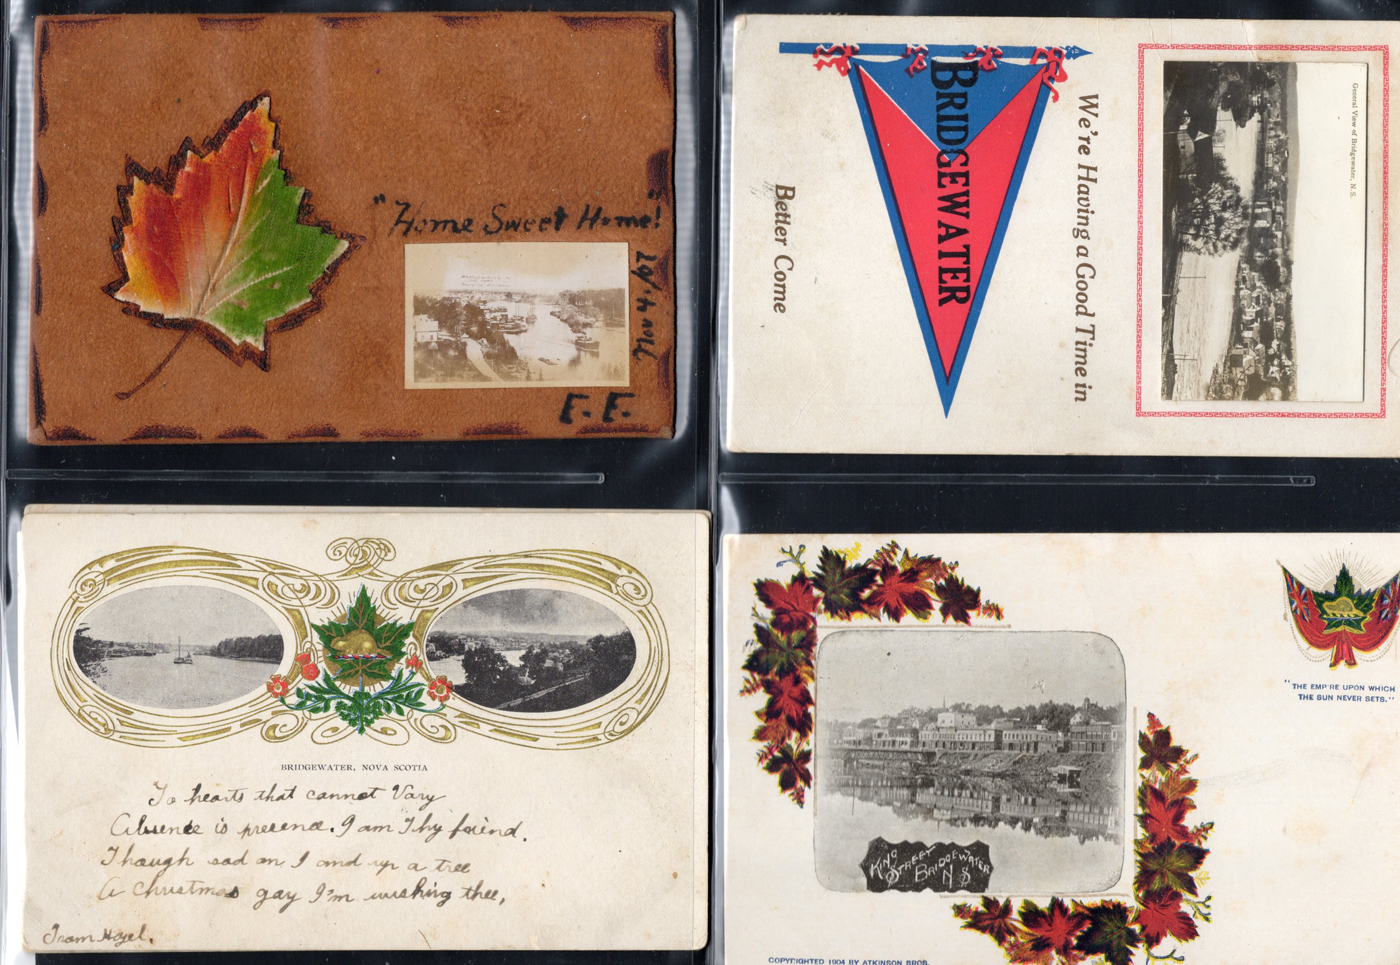 "Home Sweet Home!
Nov 4/07
E. E.
General View of Bridgewater, N.S.
We're Having a Good Time in
BRIDGEWATER
Better Come
BRIDGEWATER, NOVA SCOTIA
To hearts that cannot Vary
Absence is presence. I am Thy friend.
Though sad am I and up a tree
A Christmas gay I'm wishing thee,
From Hazel.
"THE EMPIRE UPON WHICH
THE SUN NEVER SETS."
KING
STREET BRIDGEWATER
N S
COPYRIGHTED 1904 BY ATKINSON BROS.